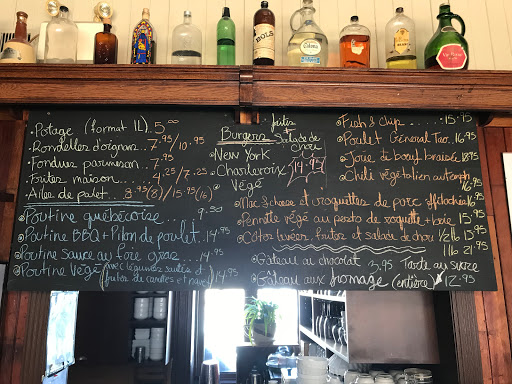 Potage (format 1L). 5.00
Rondelles d'oignons 7.95/10.95
Fondues parmesan... 7.95
Frites maison..... 4.25/7.25
Ailes de palet... 8.95(8)/15.95(16)
Poutine québécoise... 9.50
Poutine BBQ + Pilon de poulet. 14.95
Poutine sauce au foie gras... 14.95
Poutine Végé (avec légumes sautés et frites de carottes et navet) 14.95
Burgers frites + salade de chou
New York
Charlevoix
Végé
14.95
Fish & chip..... 15.95
Poulet Général Tao. 16.95
Joue de boeuf braisée 18.95
Chili végétalien 16.95
Mac & cheese et croquettes de porc effiloché 16.95
Pennette végé au pesto de roquette + 15.95
Côtes levées, frites et salade de chou 1/2 lb 15.95
1 lb 21.95
Gâteau au chocolat 3.95 Tarte au sucre
Gâteau aux fromage (entière) 12.95
BOLS